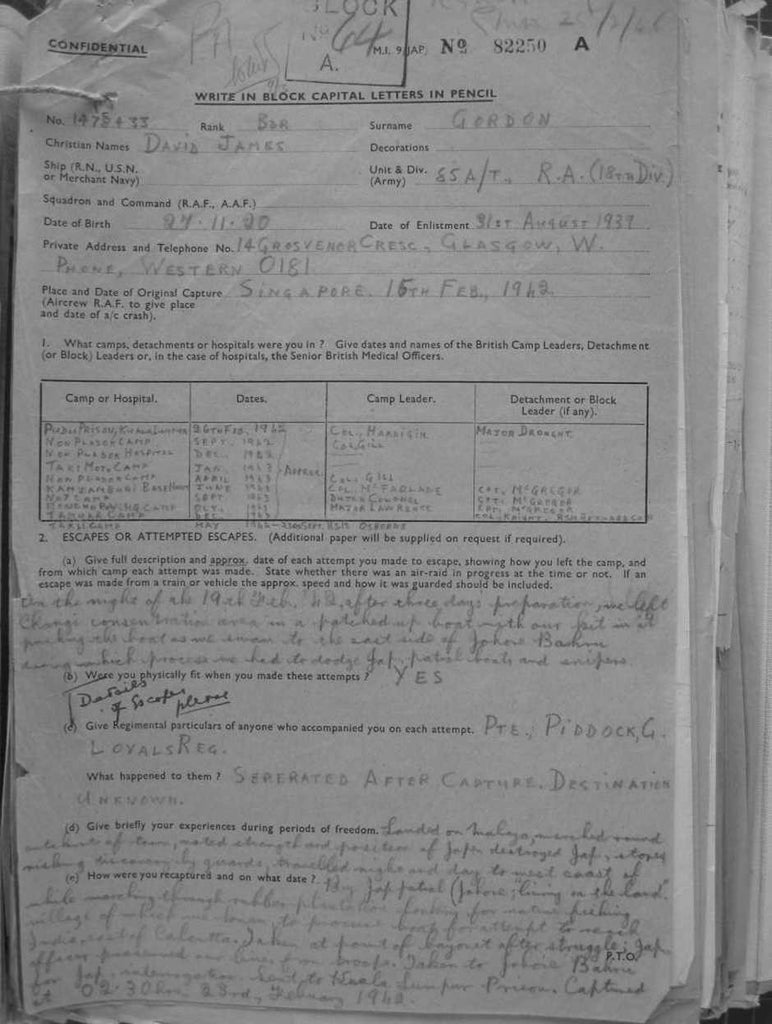 BLOCK
No 64
A.
CONFIDENTIAL
M.I. 9/JAP/ No 82250 A
WRITE IN BLOCK CAPITAL LETTERS IN PENCIL
No. 1475433 Rank BDR Surname GORDON
Christian Names DAVID JAMES Decorations
Ship (R.N., U.S.N. or Merchant Navy) Unit & Div. (Army) 85 A/T., R.A. (18TH DIV.)
Squadron and Command (R.A.F., A.A.F.)
Date of Birth 27.11.20 Date of Enlistment 31ST AUGUST 1939
Private Address and Telephone No. 14 GROSVENOR CRESC., GLASGOW, W.
PHONE, WESTERN 0181
Place and Date of Original Capture SINGAPORE. 15TH FEB., 1942
(Aircrew R.A.F. to give place
and date of a/c crash).
1. What camps, detachments or hospitals were you in ? Give dates and names of the British Camp Leaders, Detachment
(or Block) Leaders or, in the case of hospitals, the Senior British Medical Officers.
Camp or Hospital. Dates. Camp Leader. Detachment or Block Leader (if any).
PUDU PRISON, KUALA LUMPUR 26TH FEB. 1942 COL. HARDIGIN MAJOR
NON PLADUK CAMP SEPT. 1942 COL. GILL
NON PLADUK HOSPITAL DEC. 1942
CAMP JAN. 1943 APPROX
NON PLADUK CAMP APRIL 1943 COL. GILL
JUNE 1943 COL. McFARLANE McGREGOR
CAMP SEPT 1943 DUTCH COLONEL McGREGOR
CAMP OCT. 1943 MAJOR LAWRENCE McGREGOR
CAMP DEC 1943
CAMP MAY
2. ESCAPES OR ATTEMPTED ESCAPES. (Additional paper will be supplied on request if required).
(a) Give full description and approx. date of each attempt you made to escape, showing how you left the camp, and
from which camp each attempt was made. State whether there was an air-raid in progress at the time or not. If an
escape was made from a train or vehicle the approx. speed and how it was guarded should be included.
On the night of the 19th Feb. 42, after three days preparation, we left
Changi concentration area in a patched up boat with our kit in it
pushing the boat as we swam to the east side of Johore Bahru
during which process we had to dodge Jap. patrol boats and snipers.
(b) Were you physically fit when you made these attempts ? YES
Details of Escape please
(c) Give Regimental particulars of anyone who accompanied you on each attempt. PTE., PIDDOCK, G.
LOYALS REG.
What happened to them ? SEPERATED AFTER CAPTURE. DESTINATION
UNKNOWN.
(d) Give briefly your experiences during periods of freedom. Landed on Malaya, marched round
outskirt of town, noted strength and position of Japs, destroyed Jap. stores
risking discovery by guards, travelled night and day to west coast of
(e) How were you recaptured and on what date ? By Jap patrol (Johore; living on the land.
while marching through rubber plantation looking for native fishing
village of which we known to procure boat for attempt to reach
India, east of Calcutta. Taken at point of bayonet after struggle; Jap
officer our lives from troops. Taken to Johore Bahru
P.T.O.
for Jap. interrogation. Sent to Kuala Lumpur Prison. Captured
at 02.30 hrs, 23rd, February 1942.